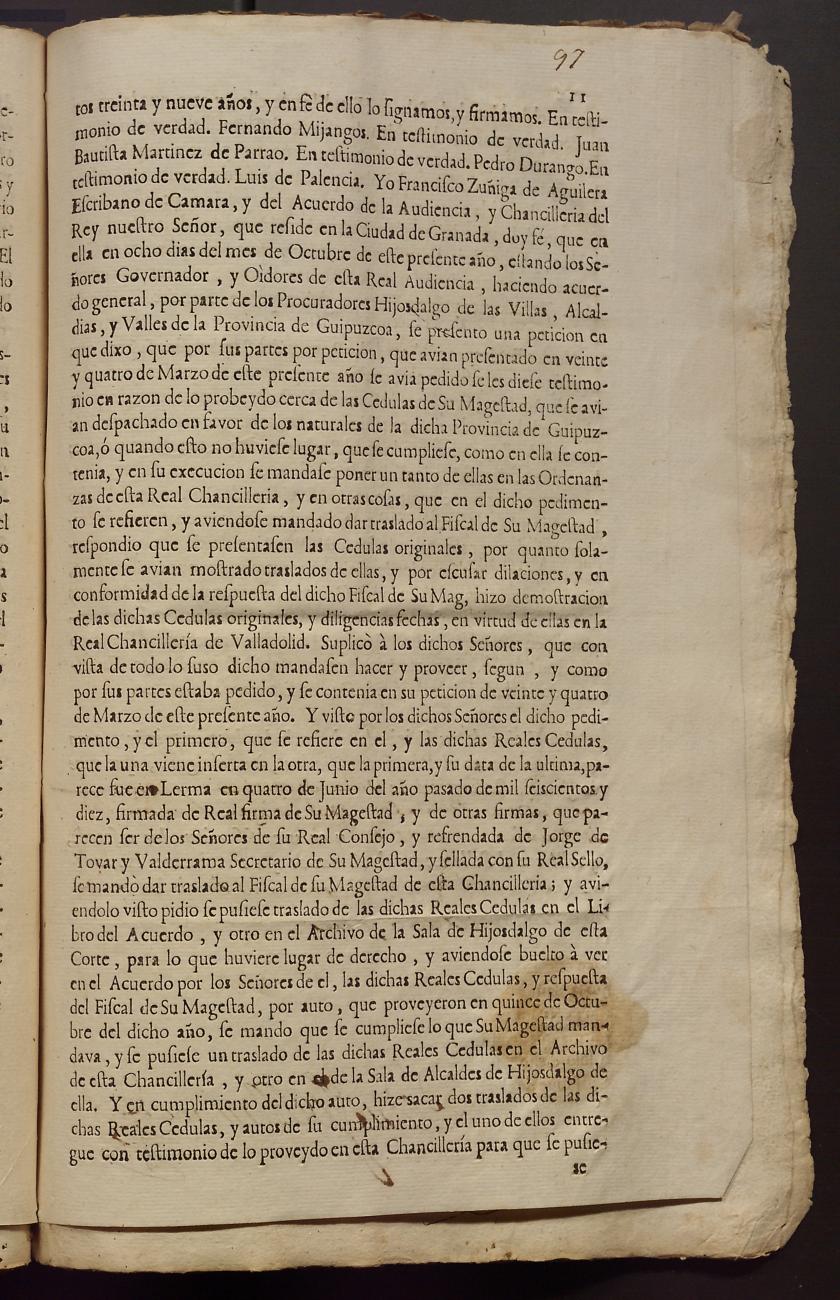 97
11
tos treinta y nueve años, y en fè de ello lo ſignamos, y firmamos. En teſti-
monio de verdad. Fernando Mijangos. En teſtimonio de verdad. Juan
Bautiſta Martinez de Parrao. En teſtimonio de verdad. Pedro Durango. En
teſtimonio de verdad. Luis de Palencia. Yo Franciſco Zuñiga de Aguilera
Eſcribano de Camara, y del Acuerdo de la Audiencia, y Chancilleria del
Rey nueſtro Señor, que reſide en la Ciudad de Granada, doy fé, que en
ella en ocho dias del mes de Octubre de eſte preſente año, eſtando los Se-
ñores Governador, y Oìdores de eſta Real Audiencia, haciendo acuer-
do general, por parte de los Procuradores Hijosdalgo de las Villas, Alcal-
dias, y Valles de la Provincia de Guipuzcoa, ſe preſento una peticion en
que dixo, que por ſus partes por peticion, que avian preſentado en veinte
y quatro de Marzo de eſte preſente año ſe avia pedido ſe les dieſe teſtimo-
nio en razon de lo probeydo cerca de las Cedulas de Su Mageſtad, que ſe avi-
an deſpachado en favor de los naturales de la dicha Provincia de Guipuz-
coa, ó quando eſto no huvieſe lugar, que ſe cumplieſe, como en ella ſe con-
tenia, y en ſu execucion ſe mandaſe poner un tanto de ellas en las Ordenan-
zas de eſta Real Chancilleria, y en otras coſas, que en el dicho pedimen-
to ſe refieren, y aviendoſe mandado dar traslado al Fiſcal de Su Mageſtad,
reſpondio que ſe preſentaſen las Cedulas originales, por quanto ſola-
mente ſe avian moſtrado traslados de ellas, y por eſcuſar dilaciones, y en
conformidad de la reſpueſta del dicho Fiſcal de Su Mag, hizo demoſtracion
de las dichas Cedulas originales, y diligencias fechas, en virtud de ellas en la
Real Chancillería de Valladolid. Suplicò à los dichos Señores, que con
viſta de todo lo ſuso dicho mandaſen hacer y proveer, ſegun, y como
por ſus partes eſtaba pedido, y ſe contenia en su peticion de veinte y quatro
de Marzo de eſte preſente año. Y viſto por los dichos Señores el dicho pedi-
mento, y el primero, que ſe refiere en el, y las dichas Reales Cedulas,
que la una viene inſerta en la otra, que la primera, y ſu data de la ultima, pa-
rece fue en Lerma en quatro de Junio del año pasado de mil ſeiscientos y
diez, firmada de Real firma de Su Mageſtad, y de otras firmas, que pa-
recen ſer de los Señores de ſu Real Conſejo, y refrendada de Jorge de
Tovar y Valderrama Secretario de Su Mageſtad, y ſellada con ſu Real Sello,
ſe mandò dar traslado al Fiſcal de ſu Mageſtad de eſta Chancilleria; y avi-
endolo viſto pidio ſe puſieſe traslado de las dichas Reales Cedulas en el Li-
bro del Acuerdo, y otro en el Archivo de la Sala de Hijosdalgo de eſta
Corte, para lo que huviere lugar de derecho, y aviendoſe buelto à ver
en el Acuerdo por los Señores de el, las dichas Reales Cedulas, y reſpueſta
del Fiſcal de Su Mageſtad, por auto, que proveyeron en quince de Octu-
bre del dicho año, ſe mando que ſe cumplieſe lo que Su Mageſtad man-
dava, y ſe puſieſe un traslado de las dichas Reales Cedulas en el Archivo
de eſta Chancillería, y otro en el de la Sala de Alcaldes de Hijosdalgo de
ella. Y en cumplimiento del dicho auto, hize sacar dos traslados de las di-
chas Reales Cedulas, y autos de ſu cumplimiento, y el uno de ellos entre-
gue con teſtimonio de lo proveydo en eſta Chancillería para que ſe puſie-
se